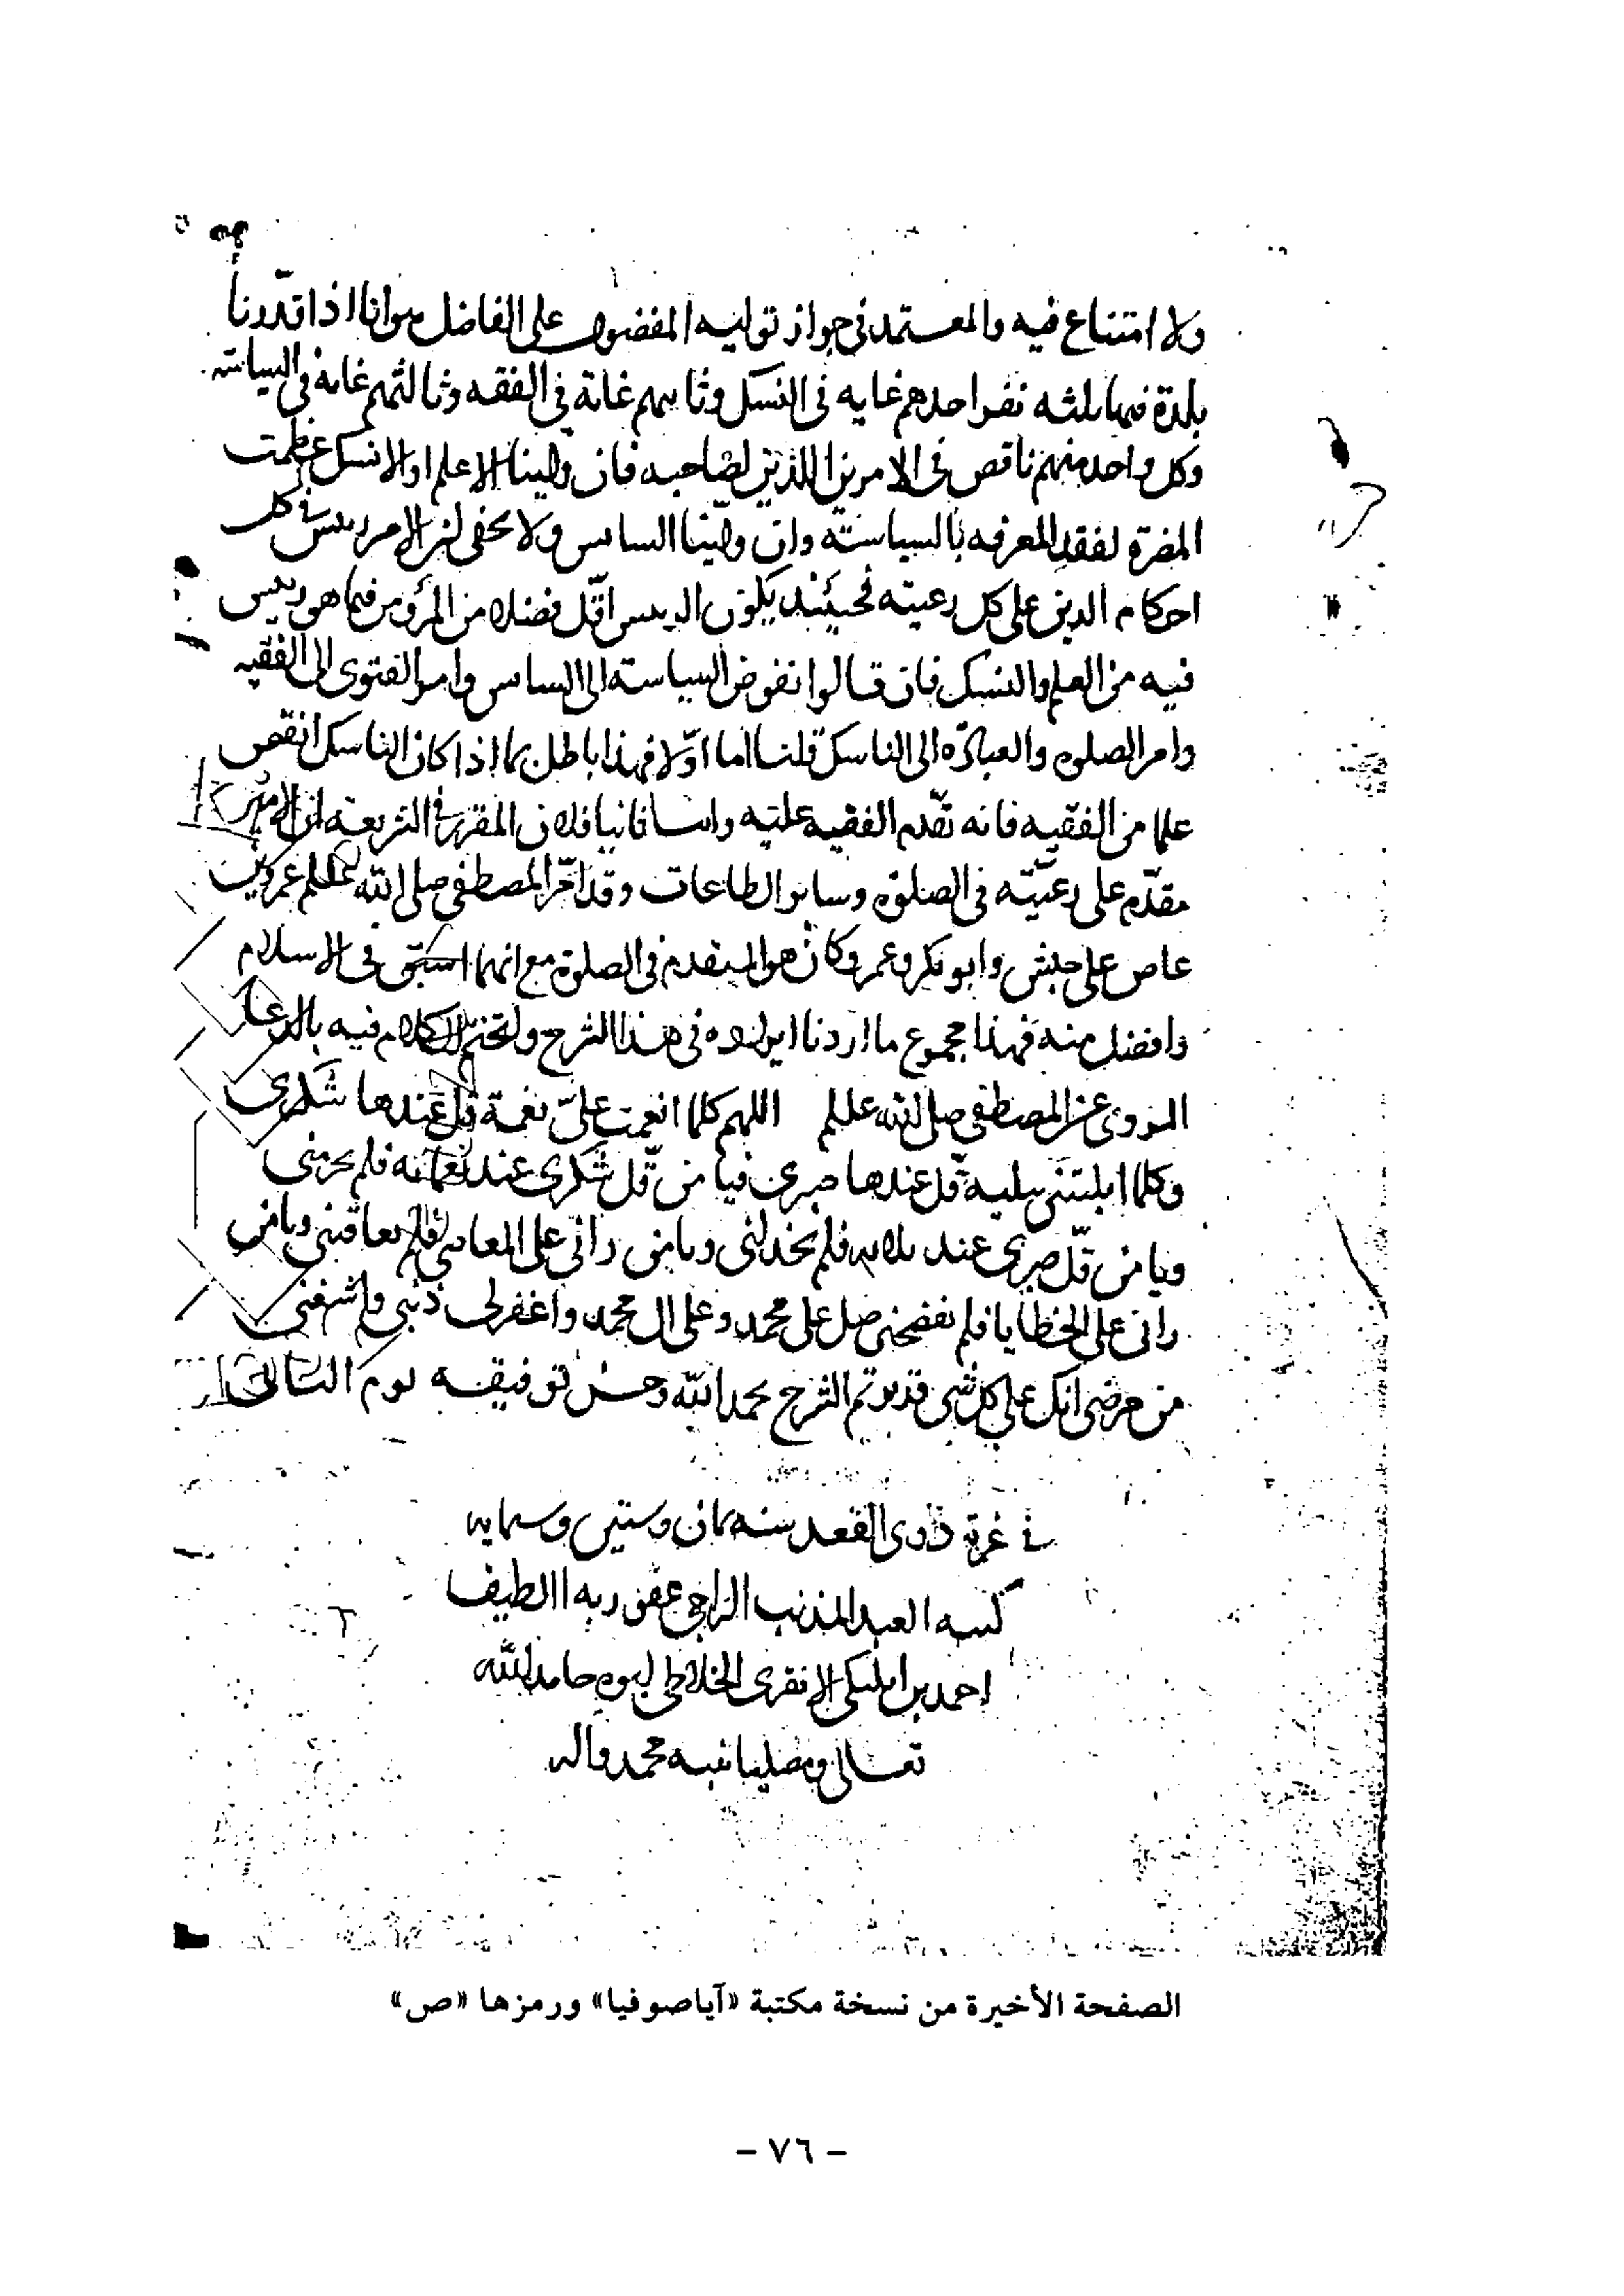 ولا امتناع فيه والمعتمد فى جواز توليه المفضول على الفاضل هوانا اذا قدّرنا
بلدة فيها ثلثه نفر احدهم غايه فى النسك وثانيهم غاية فى الفقه وثالثهم غاية فى السياسته
وكل واحد منهم ناقص فى الامرين اللذين لصاحبه فان ولينا الاعلم او الانسك عظمت
المضرة لفقد المعرفه بالسياسته وان ولّينا السايس ولا يخفى ان الامير رييس فى كل
احكام الدين على كل رعيته فحينئذ يكون الرييس اقل فضلا من المرؤوس فيما هو رييس
فيه من العلم والنسك فان قالوا نفوض السياسته الى السايس وامر الفتوى الى الفقيه
وامر الصلوه والعبادة الى الناسك قلنا اما اوّلا فهذا باطل بما اذا كان الناسك انقص
علما من الفقيه فانه تقدم الفقيه عليه واما ثانيا فلان المقرر فى الشريعة ان الامير
مقدّم على رعيّته فى الصلوة وساير الطاعات وقد امّر المصطفى صلى الله عمرو بن
عاص على جيش وابو بكر وعمر وكان هو المتقدم فى الصلوة مع انهما اسبق فى الاسلام
وافضل منه فهذا مجموع ما اردنا ايراده فى هذا الشرح ولنختم الكلام فيه بالدعا
المروى عن المصطفى صلى الله اللهم كلما انعمت علىّ نعمة قل عندها شكرى
وكلما ابليتنى ببلية قل عندها صبرى فيا من قّل شكرى عند نعمائه فلم يحرمنى
ويا من قلّ صبرى عند بلائه فلم يخذلنى ويا من رانى على المعاصى فلم يعاقبنى ويا من
رانى على الخطايا فلم يفضحنى صل على محمد وعلى ال محمد واغفر لى ذنبى واشفنى
من مرضى انك على كل شى قدير تم الشرح بحمد الله وحسن توفيقه يوم
فى غرة ذوى القعد سنه ثمان وستين
كتبه العبد المذنب الراجى عفو ربه اللطيف
احمد بن الخلاطى حامدا لله
تعالى ومصليا نبيه محمد واله
الصفحة الأخيرة من نسخة مكتبة «آياصوفيا» ورمزها «ص»
- ٧٦ -